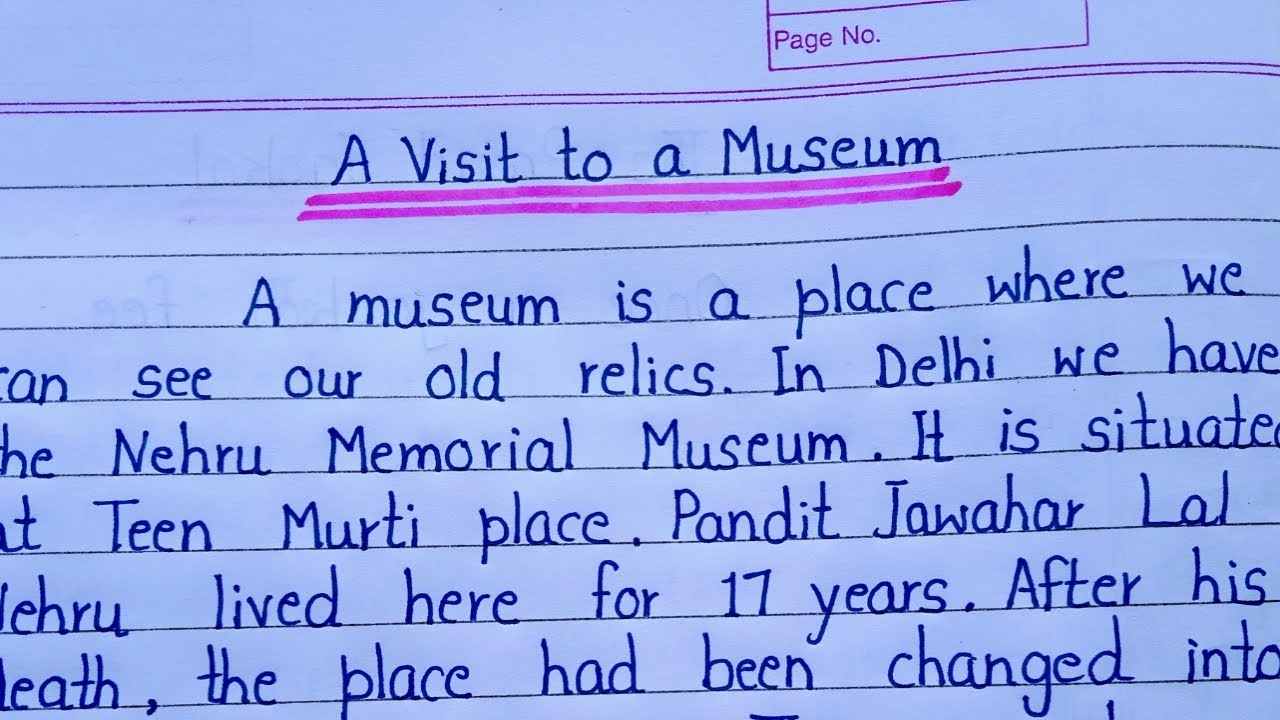 Page No.
A Visit to a Museum
A museum is a place where we
can see our old relics. In Delhi we have
the Nehru Memorial Museum. It is situated
at Teen Murti place. Pandit Jawahar Lal
Nehru lived here for 17 years. After his
death, the place had been changed into